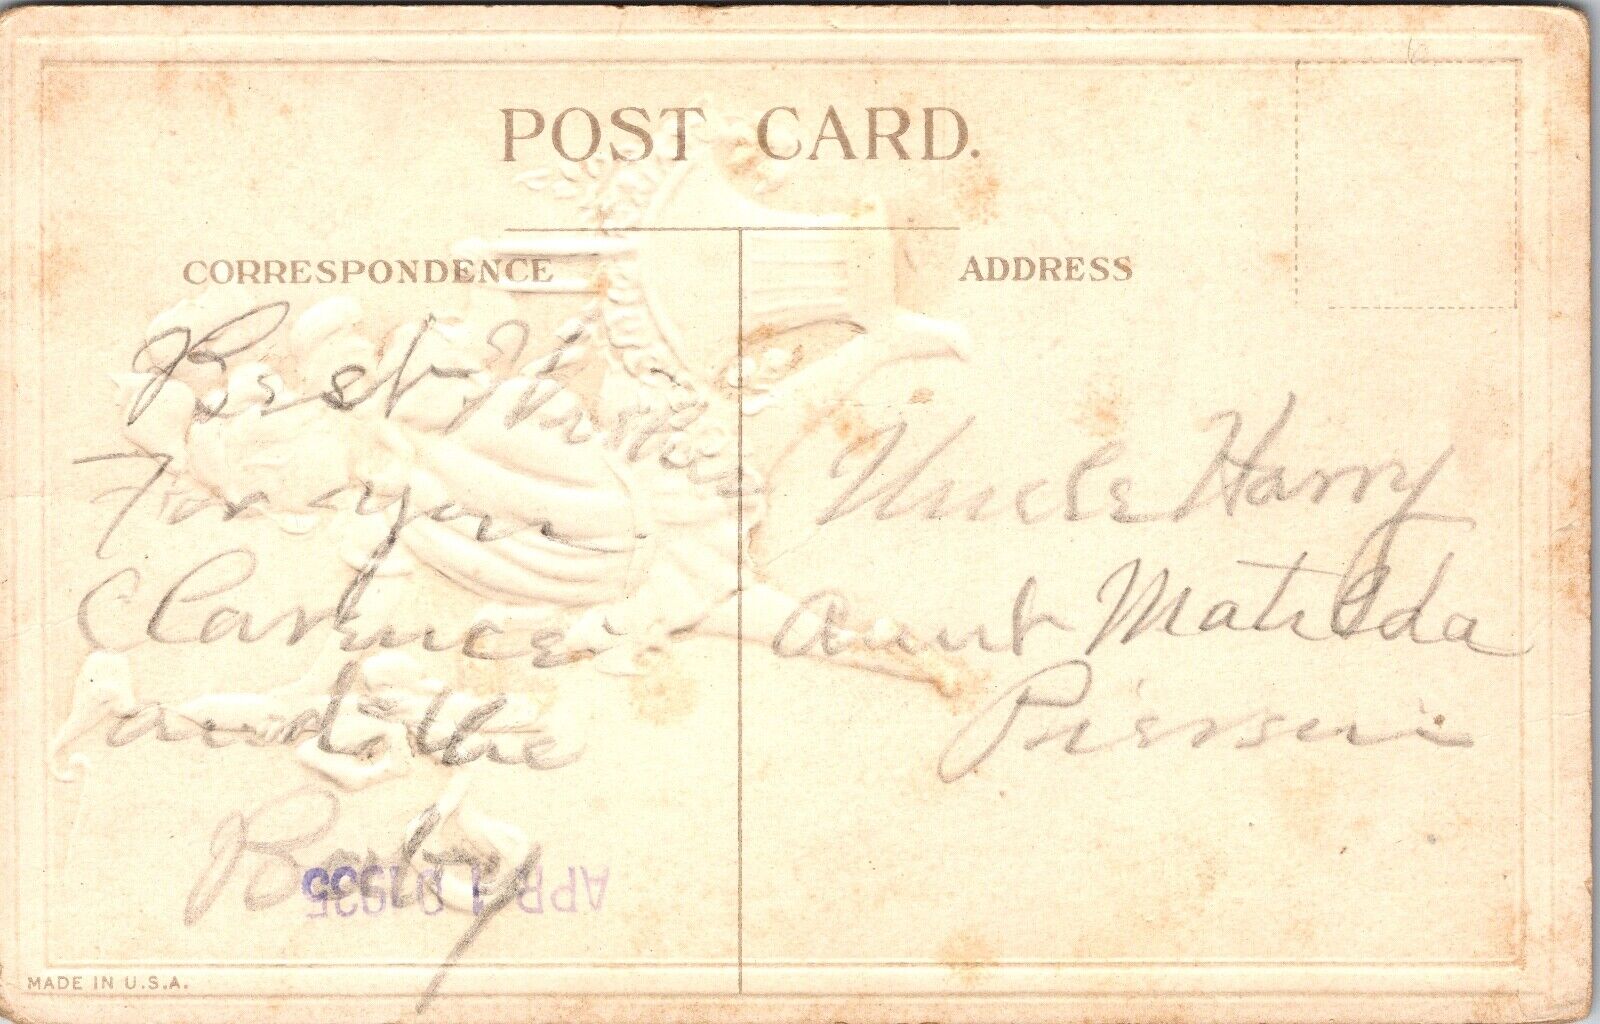 POST CARD.
CORRESPONDENCE
Best Wishes
For you
Clarence
and the
Baby
APR 10 1935
MADE IN U.S.A.
ADDRESS
Uncle Harry
Aunt Matilda